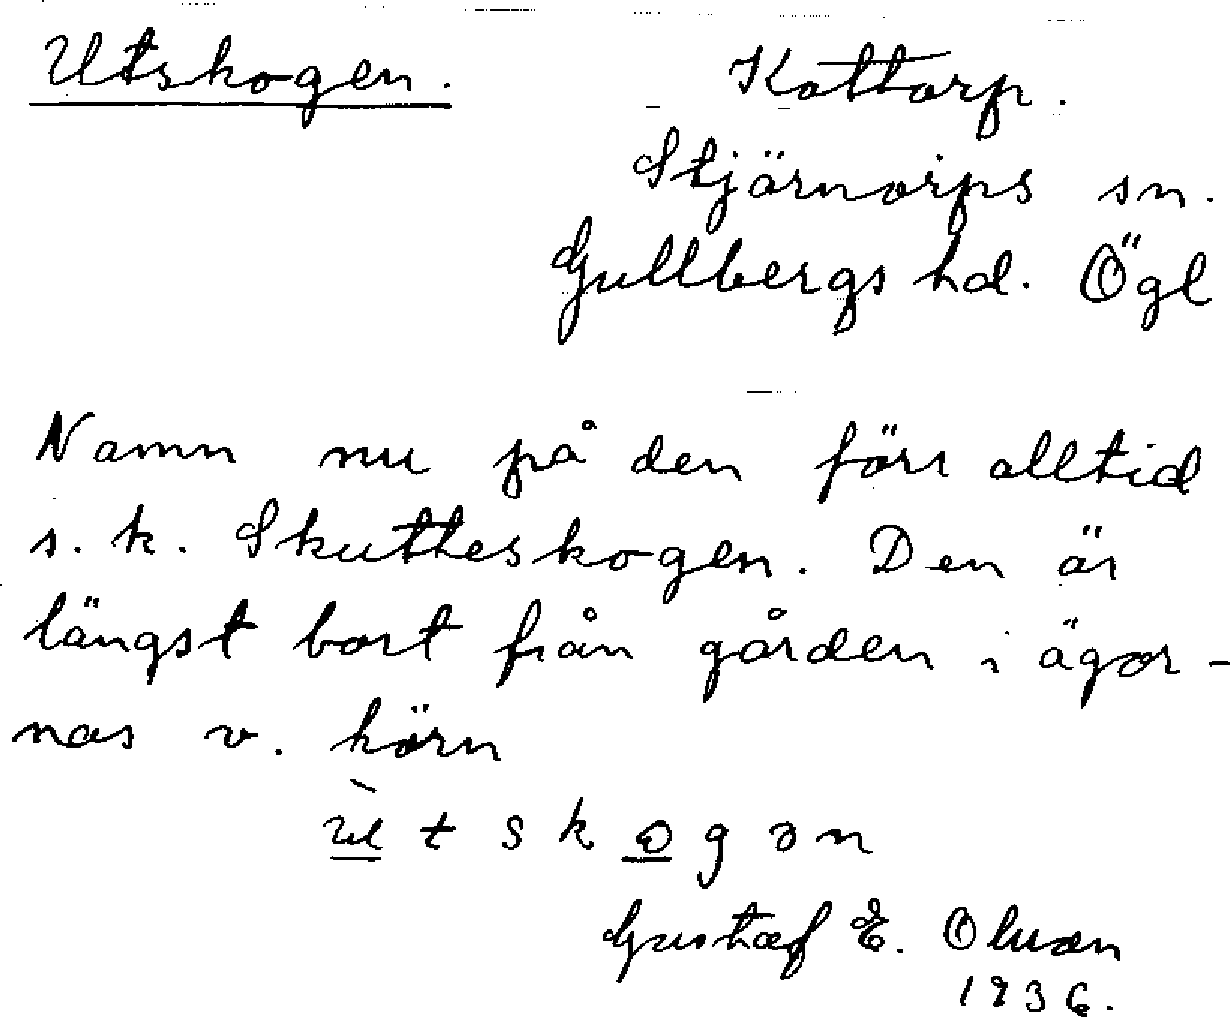 Utskogen.
Kottorp.
Stjärnorps sn.
Gullbergs hd. Ögl
Namn nu på den förr alltid
s. k. Skutteskogen. Den är
längst bort från gården i ägor-
nas v. hörn
ùtskogən
Gustaf E. Olsson
1936.